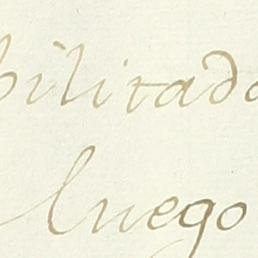 bilitado
luego